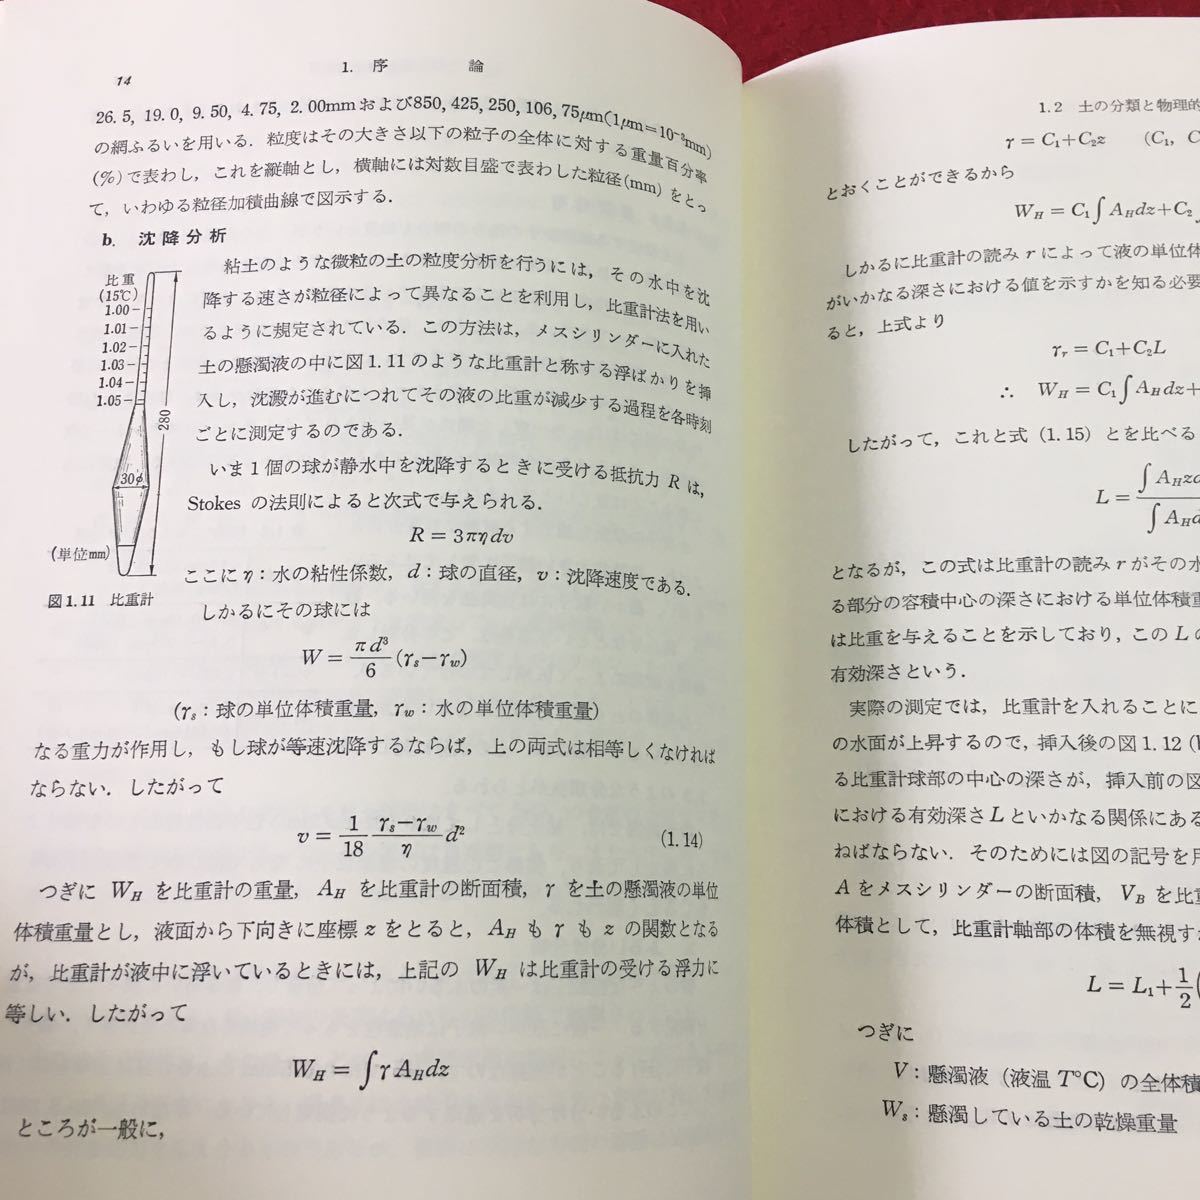 14
1. 序 論
26.5, 19.0, 9.50, 4.75, 2.00mmおよび850, 425, 250, 106, 75μm(1μm=10⁻³mm)
の網ふるいを用いる．粒度はその大きさ以下の粒子の全体に対する重量百分率
(%)で表わし，これを縦軸とし，横軸には対数目盛で表わした粒径(mm)をとっ
て，いわゆる粒径加積曲線で図示する．
b. 沈降分析
比重
(15℃)
1.00
1.01
1.02
1.03
1.04
1.05
280
30φ
(単位mm)
図1.11 比重計
粘土のような微粒の土の粒度分析を行うには，その水中を沈
降する速さが粒径によって異なることを利用し，比重計法を用い
るように規定されている．この方法は，メスシリンダーに入れた
土の懸濁液の中に図1.11のような比重計と称する浮ばかりを挿
入し，沈澱が進むにつれてその液の比重が減少する過程を各時刻
ごとに測定するのである．
いま1個の球が静水中を沈降するときに受ける抵抗力 R は，
Stokes の法則によると次式で与えられる．
R = 3πηdv
ここにη：水の粘性係数，d：球の直径，v：沈降速度である．
しかるにその球には
W = πd³/6 (γs−γw)
(γs：球の単位体積重量，γw：水の単位体積重量)
なる重力が作用し，もし球が等速沈降するならば，上の両式は相等しくなければ
ならない．したがって
v = 1/18 γs−γw/η d² (1.14)
つぎに WH を比重計の重量，AH を比重計の断面積，γ を土の懸濁液の単位
体積重量とし，液面から下向きに座標 z をとると，AH も γ も z の関数となる
が，比重計が液中に浮いているときには，上記の WH は比重計の受ける浮力に
等しい．したがって
WH = ∫γAHdz
ところが一般に，
1.2 土の分類と物理的
γ = C₁+C₂z (C₁, C
とおくことができるから
WH = C₁∫AHdz+C₂
しかるに比重計の読み r によって液の単位体
がいかなる深さにおける値を示すかを知る必要
ると，上式より
γr = C₁+C₂L
∴ WH = C₁∫AHdz+
したがって，これと式 (1.15) とを比べる
L = ∫AHzd / ∫AHd
となるが，この式は比重計の読み r がその水
る部分の容積中心の深さにおける単位体積重
は比重を与えることを示しており，この L の
有効深さという．
実際の測定では，比重計を入れることに
の水面が上昇するので，挿入後の図1.12 (b
る比重計球部の中心の深さが，挿入前の図
における有効深さ L といかなる関係にある
ねばならない．そのためには図の記号を用
A をメスシリンダーの断面積，VB を比重
体積として，比重計軸部の体積を無視す
L = L₁+1/2(
つぎに
V：懸濁液 (液温 T°C) の全体積
Ws：懸濁している土の乾燥重量